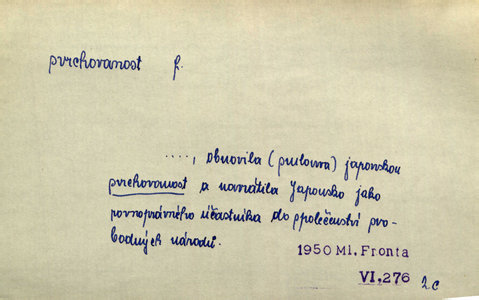 pvrchovanost f.
...., obnovila (smlouva) japonskou
pvrchovanost a navrátila Japonsko jako
rovnoprávného účastníka do společenství svo-
bodných národů.
1950 Ml. Fronta
VI, 276 2c